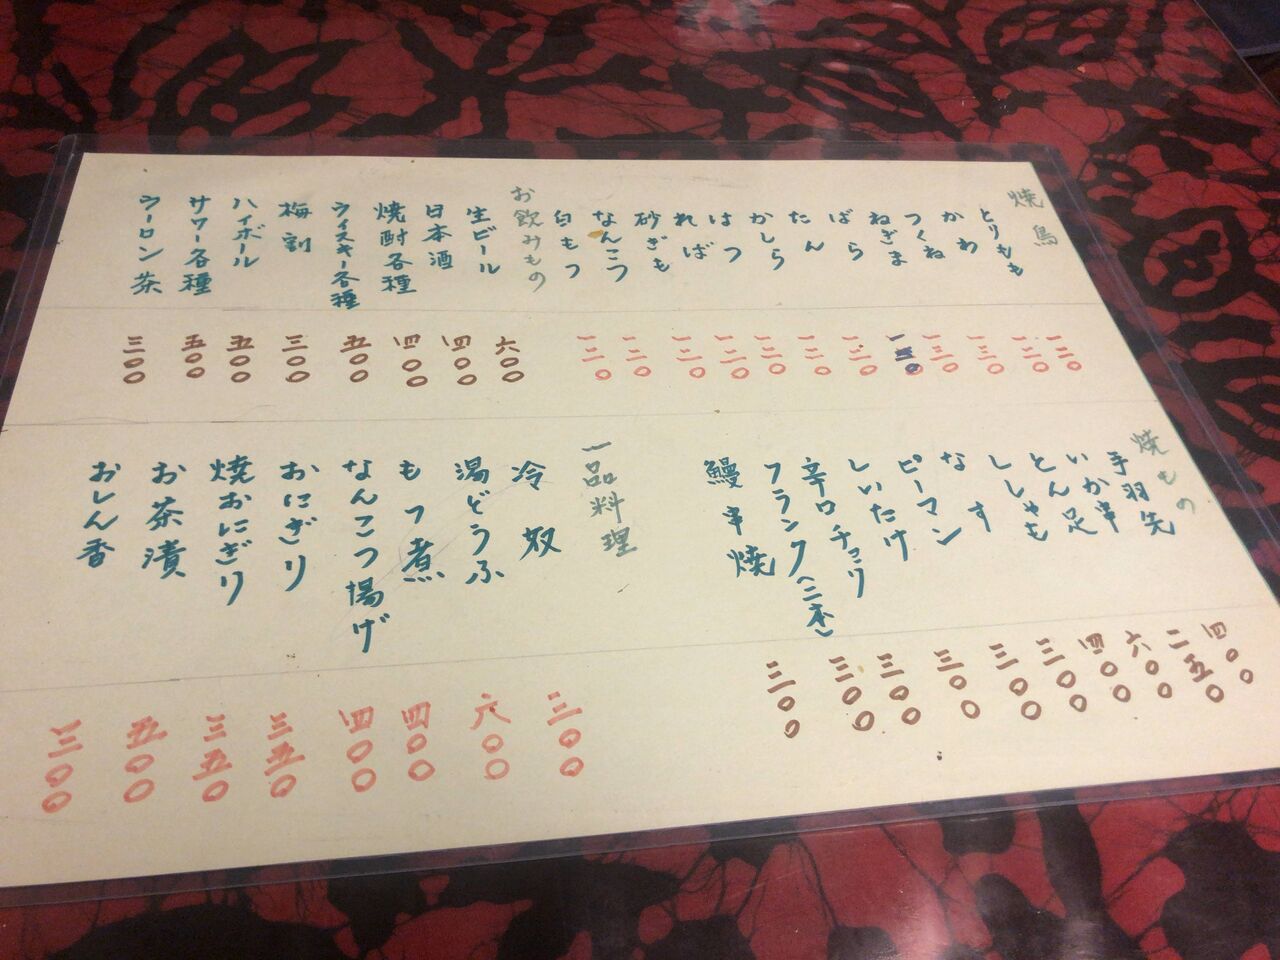 焼鳥
とりもも 一二〇
かわ 一二〇
つくね 一三〇
ねぎま 一三〇
ばら 一三〇
たん 一二〇
かしら 一二〇
はつ 一三〇
ればー 一二〇
砂ぎも 一二〇
なんこつ 一二〇
白もつ 一二〇
お飲みもの
生ビール 六〇〇
日本酒 四〇〇
焼酎各種 四〇〇
ウイスキー各種 五〇〇
梅割 三〇〇
ハイボール 五〇〇
サワー各種 五〇〇
ウーロン茶 三〇〇
焼もの
手羽先 四〇〇
いか串 二五〇
とん足 六〇〇
ししゃも 四〇〇
なす 三〇〇
ピーマン 三〇〇
しいたけ 三〇〇
辛口チョリソ 三〇〇
フランク(二本) 三〇〇
鰻串焼 三〇〇
一品料理
冷奴 三〇〇
湯どうふ 六〇〇
もつ煮 四〇〇
なんこつ揚げ 四〇〇
おにぎり 三五〇
焼おにぎり 三五〇
お茶漬 五〇〇
おしん香 三〇〇